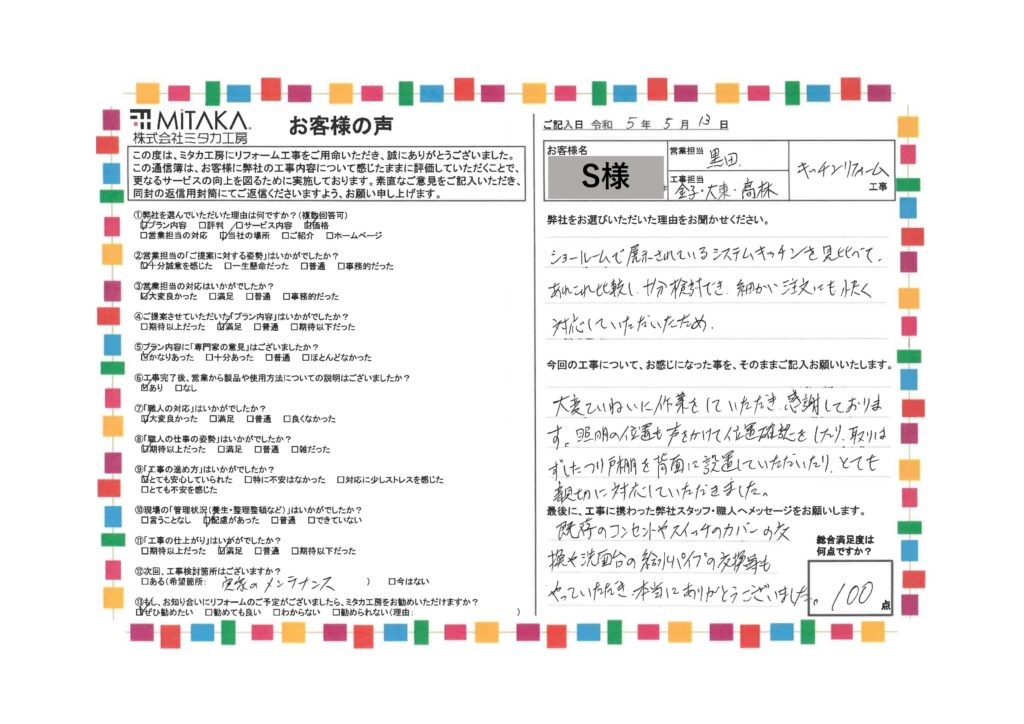 MiTAKA
株式会社ミタカ工房
お客様の声
この度は、ミタカ工房にリフォーム工事をご用命いただき、誠にありがとうございました。
この通信簿は、お客様に弊社の工事内容について感じたままに評価していただくことで、
更なるサービスの向上を図るために実施しております。素直なご意見をご記入いただき、
同封の返信用封筒にてご返信くださいますよう、お願い申し上げます。
①弊社を選んでいただいた理由は何ですか？(複数回答可)
☑プラン内容 □評判 □サービス内容 ☑価格
□営業担当の対応 ☑当社の場所 □ご紹介 □ホームページ
②営業担当の「ご提案に対する姿勢」はいかがでしたか？
☑十分誠意を感じた □一生懸命だった □普通 □事務的だった
③営業担当の対応はいかがでしたか？
☑大変良かった □満足 □普通 □事務的だった
④ご提案させていただいた「プラン内容」はいかがでしたか？
□期待以上だった ☑満足 □普通 □期待以下だった
⑤プラン内容に「専門家の意見」はございましたか？
☑かなりあった □十分あった □普通 □ほとんどなかった
⑥工事完了後、営業から製品や使用方法についての説明はございましたか？
☑あり □なし
⑦「職人の対応」はいかがでしたか？
☑大変良かった □満足 □普通 □良くなかった
⑧「職人の仕事の姿勢」はいかがでしたか？
☑期待以上だった □満足 □普通 □雑だった
⑨「工事の進め方」はいかがでしたか？
☑とても安心していられた □特に不安はなかった □対応に少しストレスを感じた
□とても不安を感じた
⑩現場の「管理状況（養生・整理整頓など）」はいかがでしたか？
□言うことなし ☑配慮があった □普通 □できていない
⑪「工事の仕上がり」はいかがでしたか？
□期待以上だった ☑満足 □普通 □期待以下だった
⑫次回、工事検討箇所はございますか？
□ある(希望箇所: 実家のメンテナンス ) □今はない
⑬もし、お知り合いにリフォームのご予定がございましたら、ミタカ工房をお勧めいただけますか？
☑ぜひ勧めたい □勧めても良い □わからない □勧められない(理由: )
ご記入日 令和 5 年 5 月 13 日
お客様名
S様
営業担当 黒田
工事担当 金子・大東・高林
キッチンリフォーム
工事
弊社をお選びいただいた理由をお聞かせください。
ショールームで展示されているシステムキッチンを見比べて、
あれこれ比較し、十分検討でき、細かい注文にも快く
対応していただいたため。
今回の工事について、お感じになった事を、そのままご記入お願いいたします。
大変ていねいに作業をしていただき、感謝しておりま
す。照明の位置も声をかけて位置確認をしたり、取りは
ずしたつり戸棚を背面に設置していただいたり、とても
親切に対応していただきました。
最後に、工事に携わった弊社スタッフ・職人へメッセージをお願いします。
既存のコンセントやスイッチのカバーの交
換や洗面台の給水パイプの交換等も
やっていただき、本当にありがとうございました。
総合満足度は
何点ですか？
100 点